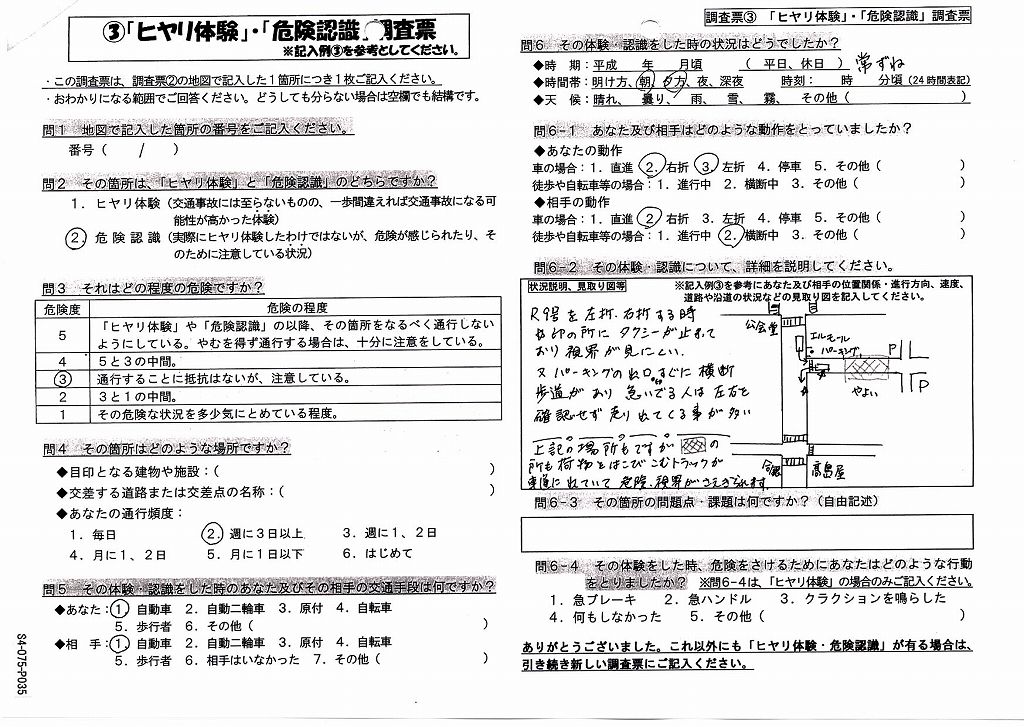 ③「ヒヤリ体験」・「危険認識」調査票
※記入例③を参考としてください。
・この調査票は、調査票②の地図で記入した1箇所につき1枚ご記入ください。
・おわかりになる範囲でご回答ください。どうしても分らない場合は空欄でも結構です。
問1 地図で記入した箇所の番号をご記入ください。
番号( 1 )
問2 その箇所は、「ヒヤリ体験」と「危険認識」のどちらですか?
1. ヒヤリ体験(交通事故には至らないものの、一歩間違えれば交通事故になる可
能性が高かった体験)
2. 危険認識(実際にヒヤリ体験したわけではないが、危険が感じられたり、そ
のために注意している状況)
問3 それはどの程度の危険ですか?
危険度 危険の程度
5 「ヒヤリ体験」や「危険認識」の以降、その箇所をなるべく通行しない
ようにしている。やむを得ず通行する場合は、十分に注意をしている。
4 5と3の中間。
3 通行することに抵抗はないが、注意している。
2 3と1の中間。
1 その危険な状況を多少気にとめている程度。
問4 その箇所はどのような場所ですか?
◆目印となる建物や施設:( )
◆交差する道路または交差点の名称:( )
◆あなたの通行頻度:
1. 毎日 2. 週に3日以上 3. 週に1、2日
4. 月に1、2日 5. 月に1日以下 6. はじめて
問5 その体験・認識をした時のあなた及びその相手の交通手段は何ですか?
◆あなた:1. 自動車 2. 自動二輪車 3. 原付 4. 自転車
5. 歩行者 6. その他( )
◆相 手:1. 自動車 2. 自動二輪車 3. 原付 4. 自転車
5. 歩行者 6. 相手はいなかった 7. その他( )
S4-075-P035
調査票③ 「ヒヤリ体験」・「危険認識」調査票
問6 その体験・認識をした時の状況はどうでしたか?
◆時 期:平成 年 月頃 ( 平日、休日 ) 常ずね
◆時間帯:明け方、朝、夕方、夜、深夜 時刻: 時 分頃(24時間表記)
◆天 候:晴れ、曇り、雨、雪、霧、その他( )
問6-1 あなた及び相手はどのような動作をとっていましたか?
◆あなたの動作
車の場合:1. 直進 2. 右折 3. 左折 4. 停車 5. その他( )
徒歩や自転車等の場合:1. 進行中 2. 横断中 3. その他( )
◆相手の動作
車の場合:1. 直進 2. 右折 3. 左折 4. 停車 5. その他( )
徒歩や自転車等の場合:1. 進行中 2. 横断中 3. その他( )
問6-2 その体験・認識について、詳細を説明してください。
状況説明、見取り図等 ※記入例③を参考にあなた及び相手の位置関係・進行方向、速度、
道路や沿道の状況などの見取り図を記入してください。
R9号を左折.右折する時
印の所にタクシーが止まって
おり視界が見にくい.
又パーキングの出口.すぐに横断
歩道があり急いでる人は左右を
確認せず走り出てくる事が多い
上記の場所もですが の
所も荷物をはこびこむトラックが
車道に出ていて危険.視界がさえぎられます.
公会堂
エルモール
パーキング
P
やよい
P
高島屋
問6-3 その箇所の問題点・課題は何ですか?(自由記述)
問6-4 その体験をした時、危険をさけるためにあなたはどのような行動
をとりましたか? ※問6-4は、「ヒヤリ体験」の場合のみご記入ください。
1. 急ブレーキ 2. 急ハンドル 3. クラクションを鳴らした
4. 何もしなかった 5. その他( )
ありがとうございました。これ以外にも「ヒヤリ体験・危険認識」が有る場合は、
引き続き新しい調査票にご記入ください。